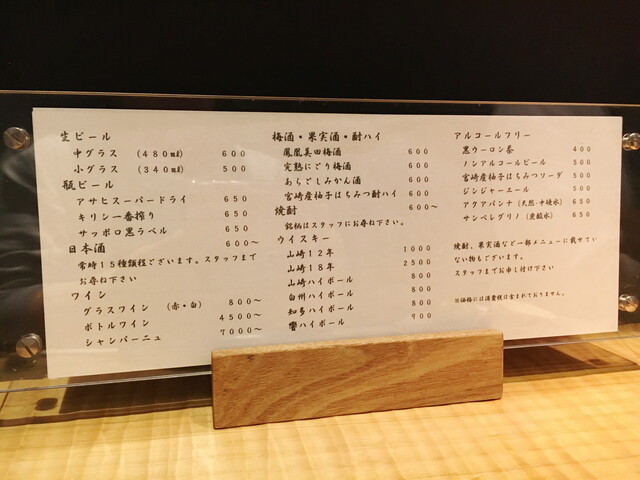 生ビール
中グラス (480㎖) 600
小グラス (340㎖) 500
瓶ビール
アサヒスーパードライ 650
キリン一番搾り 650
サッポロ黒ラベル 650
日本酒 600〜
常時15種類程ございます。スタッフまで
お尋ね下さい
ワイン
グラスワイン (赤・白) 800〜
ボトルワイン 4500〜
シャンパーニュ 7000〜
梅酒・果実酒・酎ハイ
鳳凰美田梅酒 600
完熟にごり梅酒 600
あらごしみかん酒 600
宮崎産柚子はちみつ酎ハイ 600
焼酎 600〜
銘柄はスタッフにお尋ね下さい。
ウイスキー
山崎12年 1000
山崎18年 2500
山崎ハイボール 800
白州ハイボール 800
知多ハイボール 800
響ハイボール 900
アルコールフリー
黒ウーロン茶 400
ノンアルコールビール 500
宮崎産柚子はちみつソーダ 500
ジンジャーエール 500
アクアパンナ (天然・中硬水) 650
サンペレグリノ (炭酸水) 650
焼酎、果実酒など一部メニューに載せてい
ない物もございます。
スタッフまでお申し付け下さい
※価格には消費税は含まれておりません。